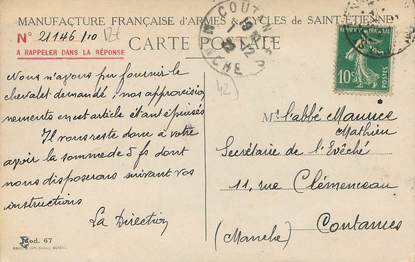 MANUFACTURE FRANÇAISE d'ARMES & CYCLES de SAINT-ÉTIENNE
N° 21146 J10
A RAPPELER DANS LA RÉPONSE
CARTE POSTALE
COUTANCES
MANCHE
10c
POSTES
Nous n'avons pu fournir le
chevalet demandé nos approvision
nements en cet article étant épuisés
Il vous reste donc à votre
avoir la somme de 5 fs dont
nous disposerons suivant vos
instructions
La Direction
42
M. l'abbé Maurice
Mathieu
Secrétaire de l'Évêché
11, rue Clémenceau
Coutances
(Manche)
Mod. 67